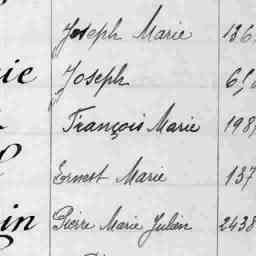 Joseph Marie 136
ie Joseph
François Marie 198
Ernest Marie 137
in Pierre Marie Julien 2438